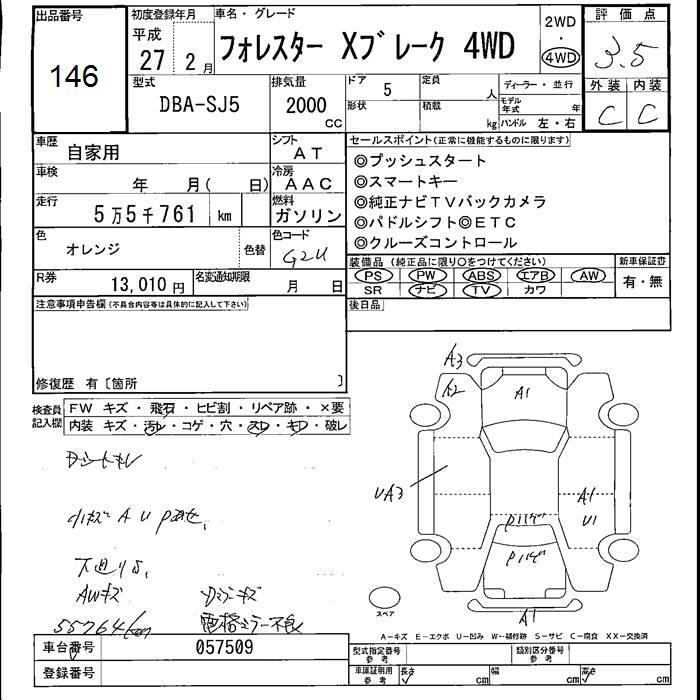 出品番号
146
初度登録年月
平成
27 2月
車名・グレード
フォレスター Xブレーク 4WD
2WD
・
4WD
評価点
3.5
外装 内装
C C
型式
DBA-SJ5
排気量
2000
CC
ドア 5
形状
定員 人
積載 kg
ディーラー・並行
モデル年式 年
ハンドル 左・右
車歴
自家用
シフト
AT
車検 年 月( 日)
冷房
AAC
走行
5万5千761 km
燃料
ガソリン
色
オレンジ
色替
色コード
G2U
R券 13,010円
名変通知期限 月 日
セールスポイント(正常に機能するものに限ります)
◎プッシュスタート
◎スマートキー
◎純正ナビTVバックカメラ
◎パドルシフト◎ETC
◎クルーズコントロール
装備品(純正品に限り○をつけてください)
PS PW ABS エアB AW
SR ナビ TV カワ
新車保証書
有・無
後日品
注意事項申告欄(不具合内容等は具体的に記入して下さい)
修復歴 有〔箇所 〕
検査員
記入欄
FW キズ・飛石・ヒビ割・リペア跡・×要
内装 キズ・汚レ・コゲ・穴・スレ・キワ・破レ
下廻りS,
AWキズ
55764km
A3
A2
A1
UA3
A1
U1
A1
スペア
A-キズ E-エクボ U-凹み W-補修跡 S-サビ C-腐食 XX-交換済
車台番号 057509
登録番号
型式指定番号
参考
類別区分番号
参考
車庫証明用
参考
長さ cm 幅 cm 高さ cm